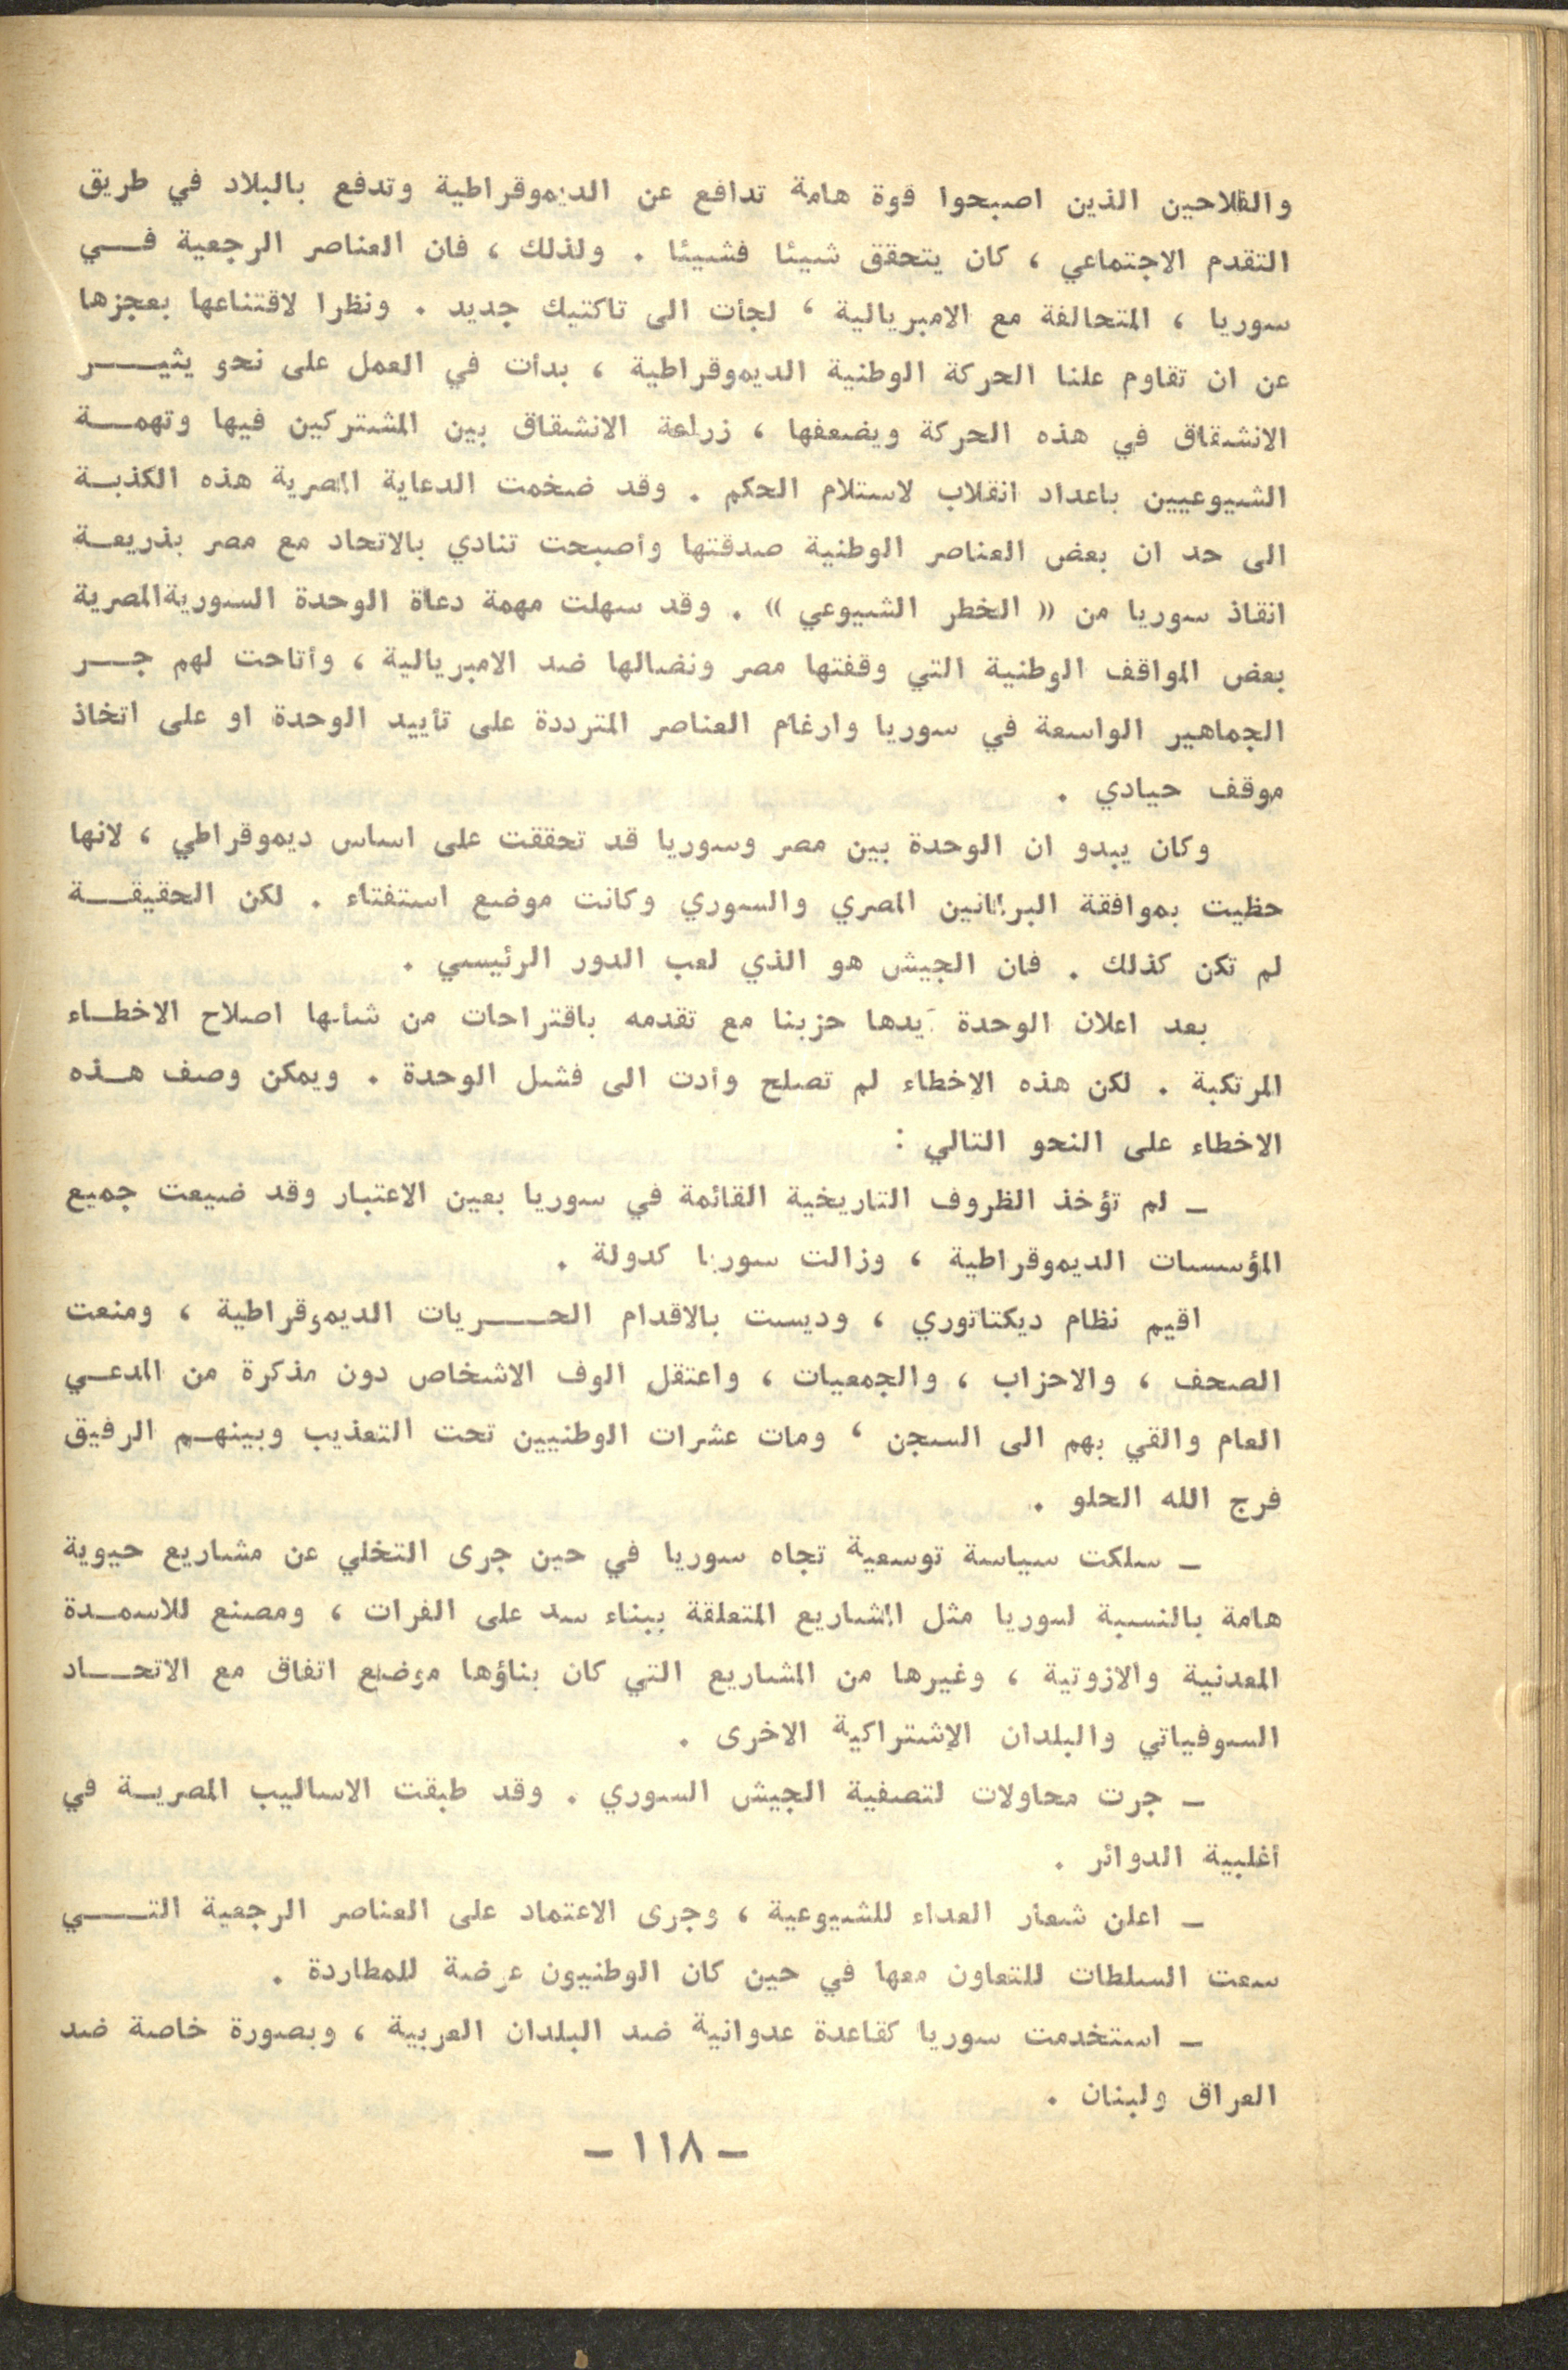 والفلاحين الذين اصبحوا قوة هامة تدافع عن الديموقراطية وتدفع بالبلاد في طريق
التقدم الاجتماعي ، كان يتحقق شيئا فشيئا . ولذلك ، فان العناصر الرجعية فـــي
سوريا ، المتحالفة مع الامبريالية ، لجأت الى تاكتيك جديد . ونظرا لاقتناعها بعجزها
عن ان تقاوم علنا الحركة الوطنية الديموقراطية ، بدأت في العمل على نحو يثيـــر
الانشقاق في هذه الحركة ويضعفها ، زراعة الانشقاق بين المشتركين فيها وتهمــة
الشيوعيين باعداد انقلاب لاستلام الحكم . وقد ضخمت الدعاية المصرية هذه الكذبــة
الى حد ان بعض العناصر الوطنية صدقتها وأصبحت تنادي بالاتحاد مع مصر بذريعــة
انقاذ سوريا من « الخطر الشيوعي » . وقد سهلت مهمة دعاة الوحدة السوريةالمصرية
بعض المواقف الوطنية التي وقفتها مصر ونضالها ضد الامبريالية ، وأتاحت لهم جـــر
الجماهير الواسعة في سوريا وارغام العناصر المترددة على تأييد الوحدة او على اتخاذ
موقف حيادي .
وكان يبدو ان الوحدة بين مصر وسوريا قد تحققت على اساس ديموقراطي ، لانها
حظيت بموافقة البرلمانين المصري والسوري وكانت موضع استفتاء . لكن الحقيقــة
لم تكن كذلك . فان الجيش هو الذي لعب الدور الرئيسي .
بعد اعلان الوحدة أيدها حزبنا مع تقدمه باقتراحات من شأنها اصلاح الاخطــاء
المرتكبة . لكن هذه الاخطاء لم تصلح وأدت الى فشل الوحدة . ويمكن وصف هــذه
الاخطاء على النحو التالي :
ـ لم تؤخذ الظروف التاريخية القائمة في سوريا بعين الاعتبار وقد ضيعت جميع
المؤسسات الديموقراطية ، وزالت سوريا كدولة .
اقيم نظام ديكتاتوري ، وديست بالاقدام الحـــريات الديموقراطية ، ومنعت
الصحف ، والاحزاب ، والجمعيات ، واعتقل الوف الاشخاص دون مذكرة من المدعــي
العام والقي بهم الى السجن ، ومات عشرات الوطنيين تحت التعذيب وبينهــم الرفيق
فرج الله الحلو .
ـ سلكت سياسة توسعية تجاه سوريا في حين جرى التخلي عن مشاريع حيوية
هامة بالنسبة لسوريا مثل المشاريع المتعلقة ببناء سد على الفرات ، ومصنع للاسمــدة
المعدنية والازوتية ، وغيرها من المشاريع التي كان بناؤها موضع اتفاق مع الاتحــاد
السوفياتي والبلدان الإشتراكية الاخرى .
ـ جرت محاولات لتصفية الجيش السوري . وقد طبقت الاساليب المصريــة في
أغلبية الدوائر .
ـ اعلن شعار العداء للشيوعية ، وجرى الاعتماد على العناصر الرجعية التـــي
سعت السلطات للتعاون معها في حين كان الوطنيون عرضة للمطاردة .
ـ استخدمت سوريا كقاعدة عدوانية ضد البلدان العربية ، وبصورة خاصة ضد
العراق ولبنان .
ـ ١١٨ ـ